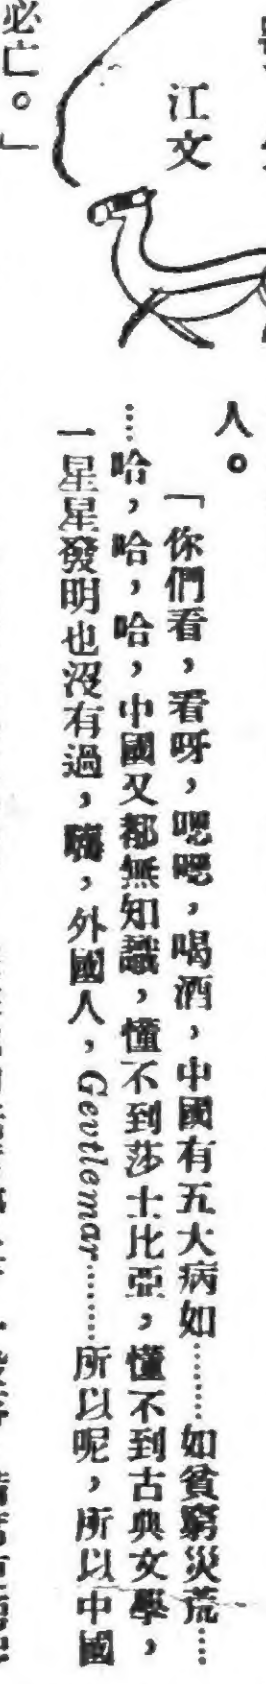 江文
必亡。」
人。
「你們看，看呀，嗯嗯，喝酒，中國有五大病如………如貧窮災荒…
…哈，哈，哈，中國又都無知識，懂不到莎士比亞，懂不到古典文學，
一星星發明也沒有過，嗨，外國人，Gevtlemar………所以呢，所以中國